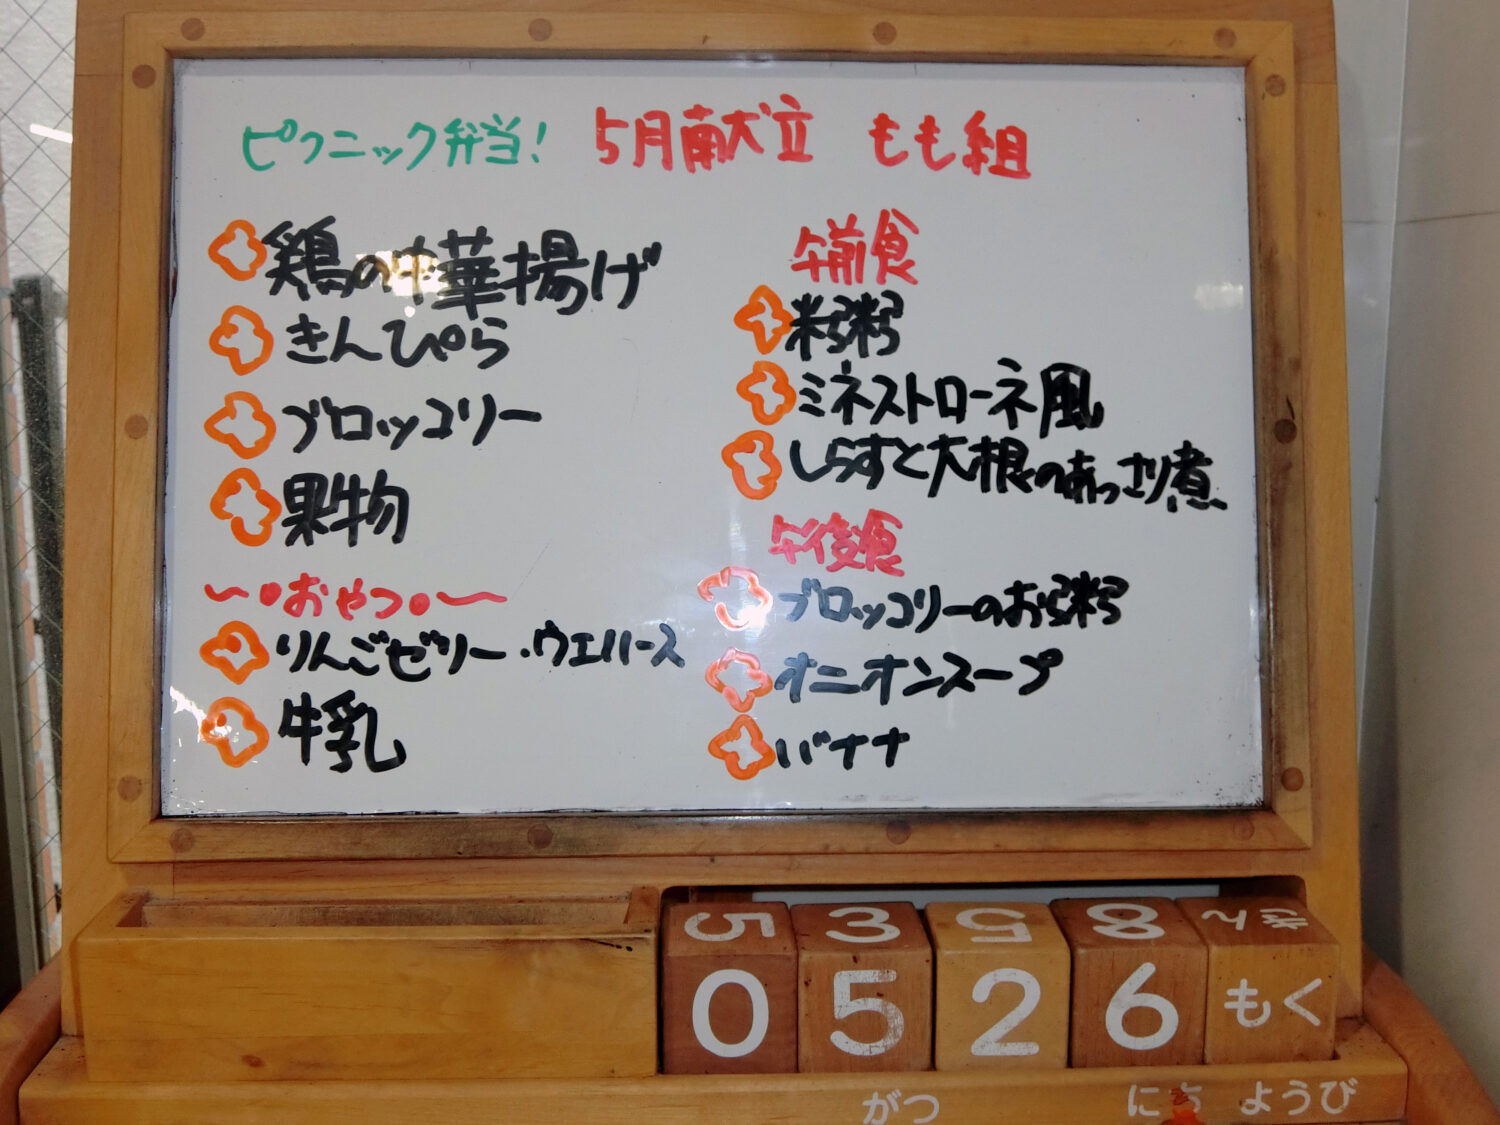 ピクニック弁当！ 5月献立 もも組
鶏の中華揚げ
きんぴら
ブロッコリー
果物
〜•おやつ•〜
りんごゼリー・ウエハース
牛乳
午前食
粥
ミネストローネ風
しらすと大根のあっさり煮
午後食
ブロッコリーのお粥
オニオンスープ
バナナ
5 3 5 8 きん
0 5 2 6 もく
がつ にち ようび